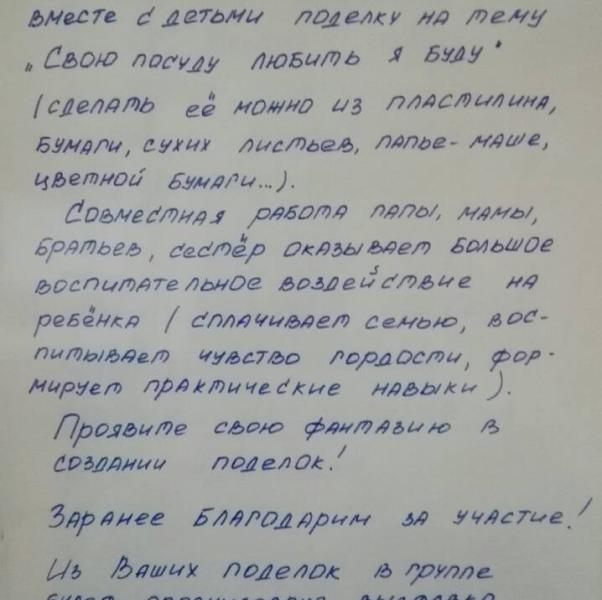 вместе с детьми поделку на тему
„Свою посуду любить я буду"
(сделать её можно из пластилина,
бумаги, сухих листьев, папье-маше,
цветной бумаги...).
Совместная работа папы, мамы,
братьев, сестёр оказывает большое
воспитательное воздействие на
ребёнка (сплачивает семью, вос-
питывает чувство гордости, фор-
мирует практические навыки).
Проявите свою фантазию в
создании поделок!
Заранее благодарим за участие!
Из Ваших поделок в группе